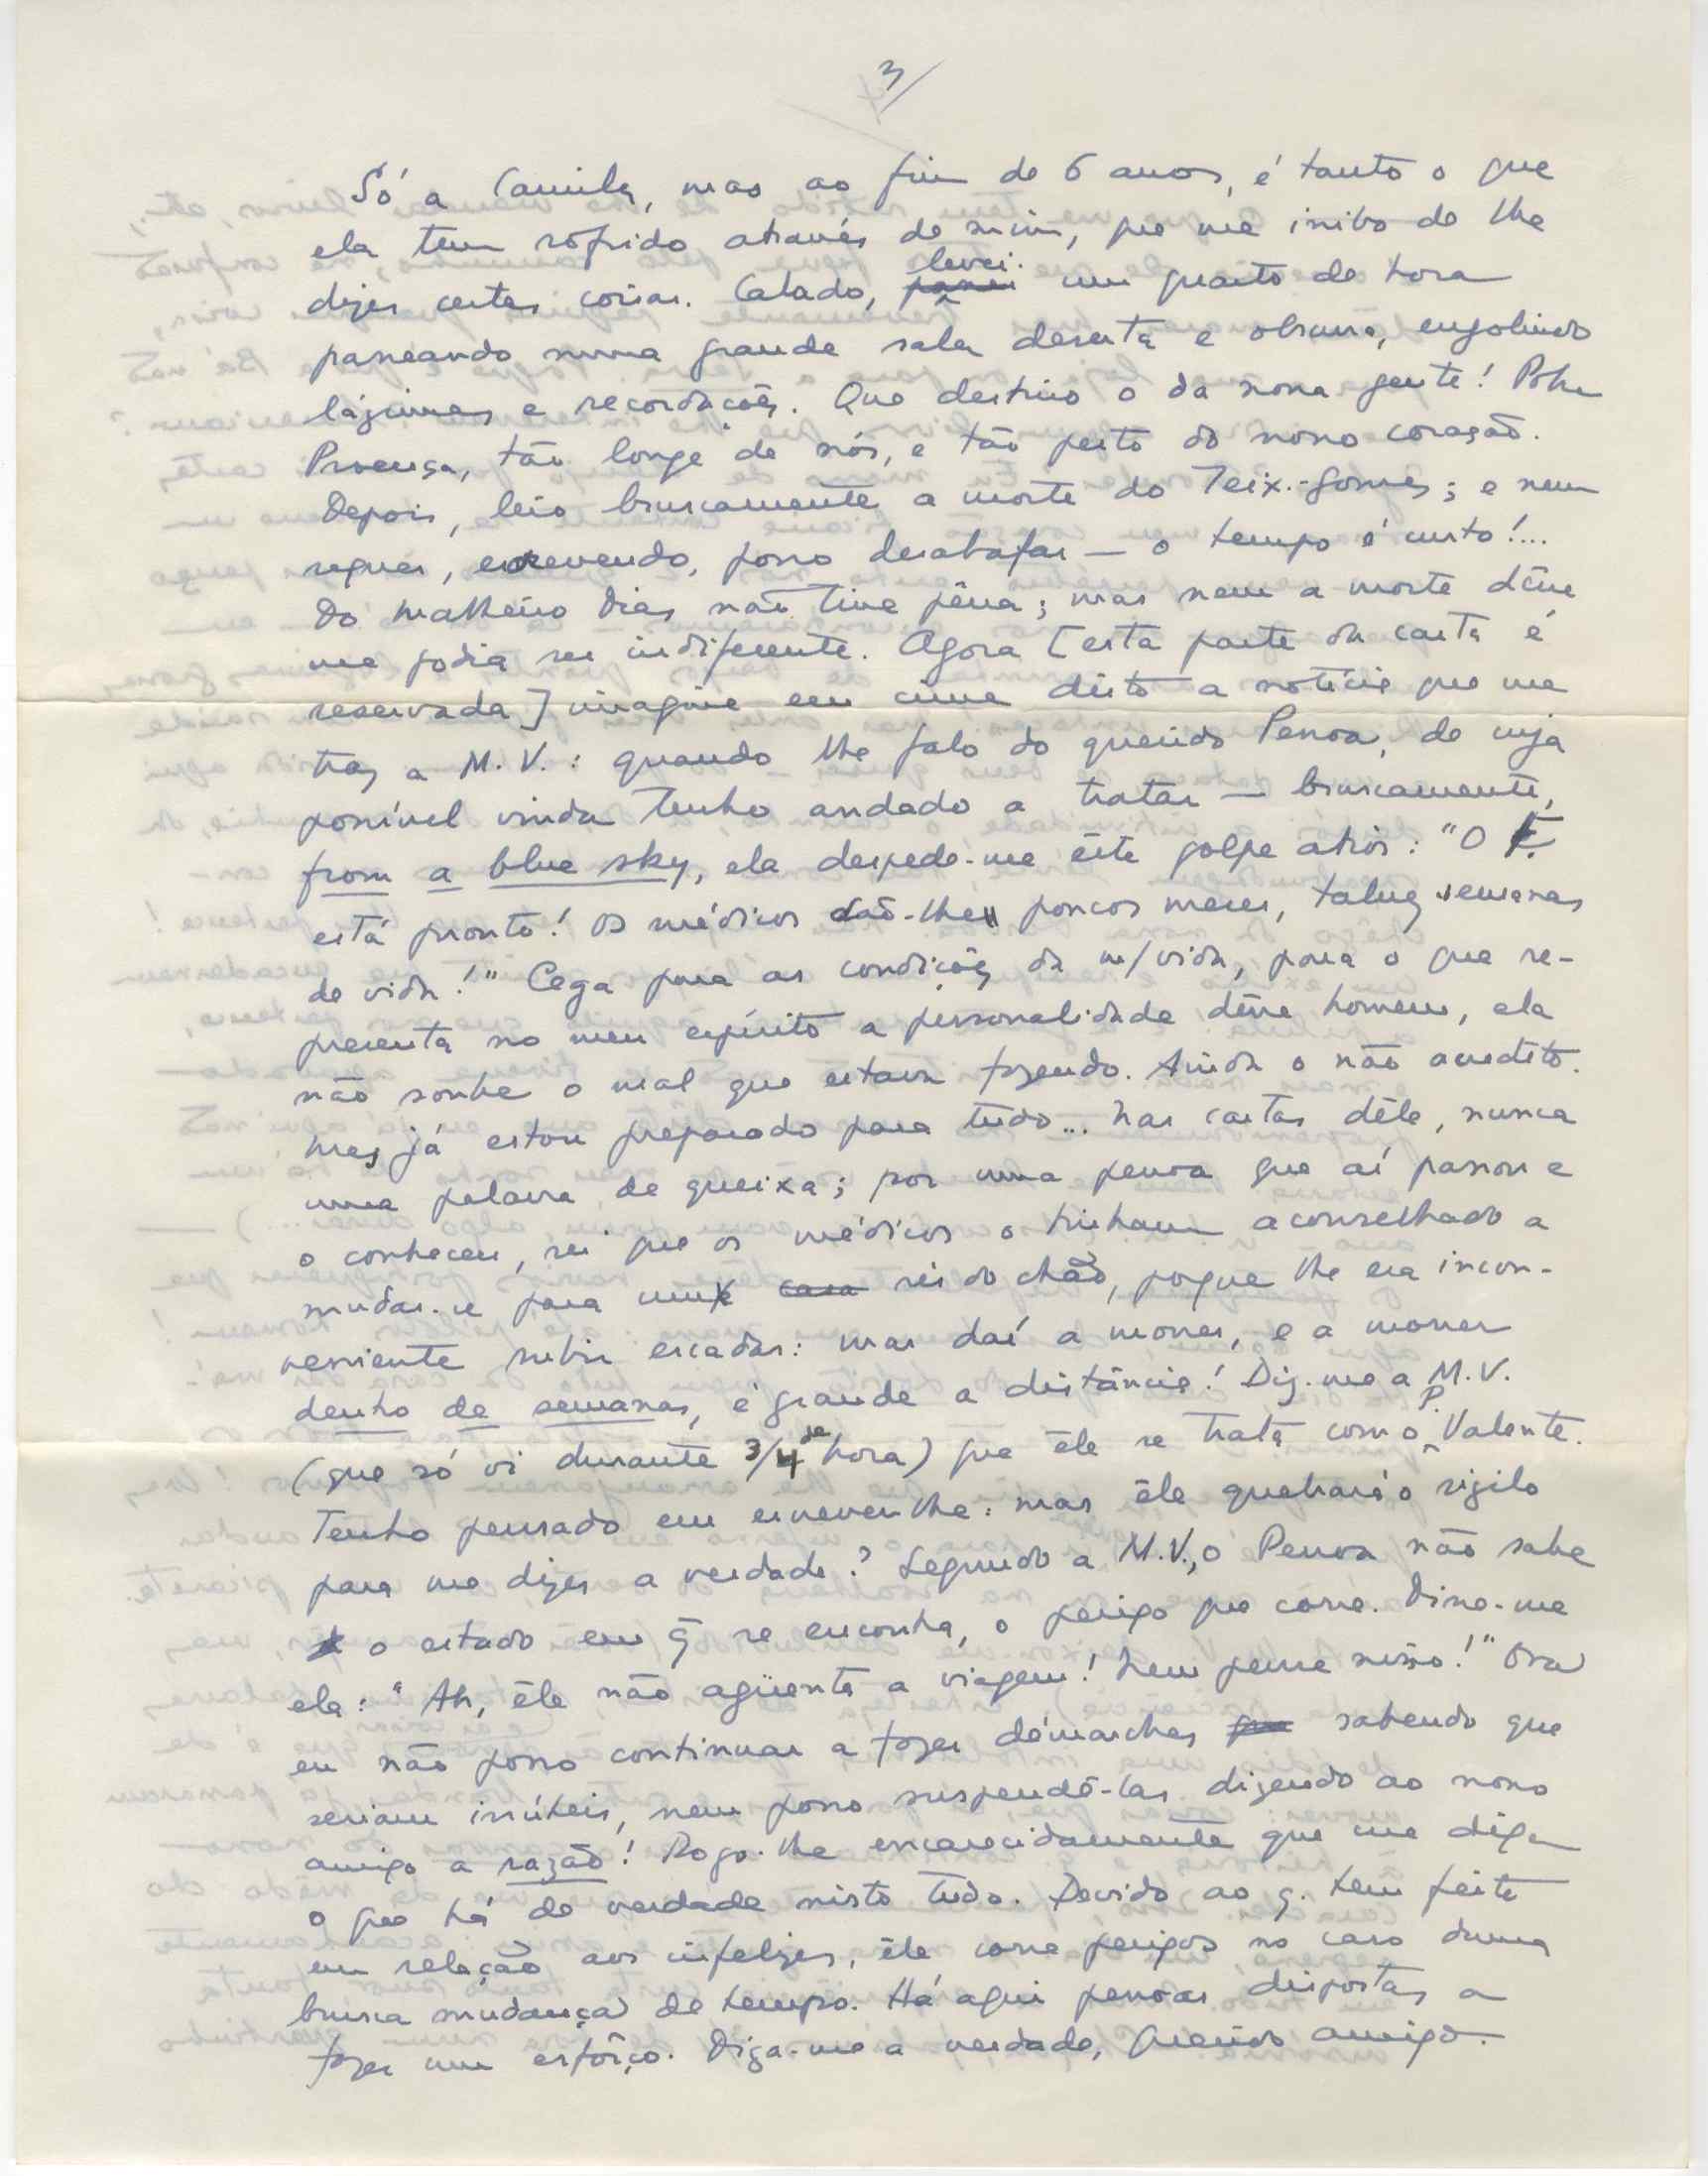 3/
Só a Camila, mas ao fim de 6 anos, é tanto o que
ela tem sofrido através de mim, que me inibo de lhe
dizer certas coisas. Calado, levei um quarto de hora
passeando numa grande sala deserta e obscura, engolindo
lágrimas e recordações. Que destino o da nossa gente! Pobre
Proença, tão longe de nós, e tão perto do nosso coração.
Depois, leio bruscamente a morte do Teix.-Gomes; e nem
sequer, escrevendo, posso desabafar — o tempo é curto!...
Do Malheiro Dias não tive pêna; mas nem a morte dêsse
me podia ser indiferente. Agora [esta parte da carta é
reservada] imagine em cima disto a notícia que me
traz a M. V.: quando lhe falo do querido Pessoa, de cuja
possível vinda tenho andado a tratar — bruscamente,
from a blue sky, ela despede-me êste golpe atroz: "O P.
está pronto! Os médicos dão-lhe poucos meses, talvez semanas
de vida!" Cega para as condições da m/vida, para o que re-
presenta no meu espírito a personalidade dêsse homem, ela
não soube o mal que estava fazendo. Ainda o não acredito.
Mas já estou preparado para tudo... Nas cartas dêle, nunca
uma palavra de queixa; por uma pessoa que aí passou e
o conheceu, sei que os médicos o tinham aconselhado a
mudar-se para um casa rés do chão, porque lhe era incon-
veniente subir escadas: mas daí a morrer, e a morrer
dentro de semanas, é grande a distância! Diz-me a M. V.
(que só vi durante 3/4 de hora) que êle se trata com o P. Valente.
Tenho pensado em escrever-lhe: mas êle quebrará o sigilo
para me dizer a verdade? Segundo a M.V., o Pessoa não sabe
o estado em q̃ se encontra, o perigo que corre. Disse-me
ela: "Ah, êle não agüenta a viagem! Nem pense nisso!" Ora
eu não posso continuar a fazer démarches que sabendo que
seriam inúteis, nem posso suspendê-las dizendo ao nosso
amigo a razão! Rogo-lhe encarecidamente que me diga
o que há de verdade nisto tudo. Devido ao q. tem feito
em relação aos infelizes, êle corre perigos no caso duma
brusca mudança de tempo. Há aqui pessoas dispostas a
fazer um esfôrço. Diga-me a verdade, querido amigo.